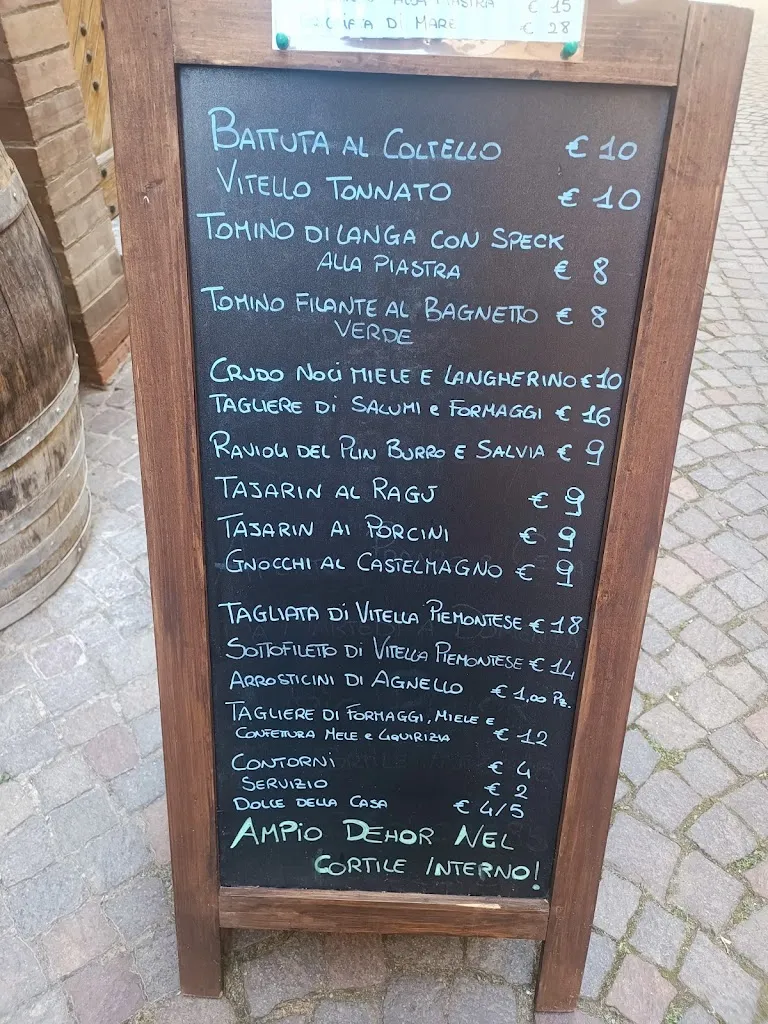 ALLA PIASTRA € 15
DI MARE € 28
BATTUTA AL COLTELLO € 10
VITELLO TONNATO € 10
TOMINO DI LANGA CON SPECK
ALLA PIASTRA € 8
TOMINO FILANTE AL BAGNETTO € 8
VERDE
CRUDO NOCI MIELE E LANGHERINO € 10
TAGLIERE DI SALUMI e FORMAGGI € 16
RAVIOLI DEL PLIN BURRO E SALVIA € 9
TAJARIN AL RAGÙ € 9
TAJARIN AI PORCINI € 9
GNOCCHI AL CASTELMAGNO € 9
TAGLIATA DI VITELLA PIEMONTESE € 18
SOTTOFILETTO DI VITELLA PIEMONTESE € 14
ARROSTICINI DI AGNELLO € 1,00 Pz.
TAGLIERE DI FORMAGGI, MIELE E
CONFETURA MELE e LIQUIRIZIA € 12
CONTORNI € 4
SERVIZIO € 2
DOLCE DELLA CASA € 4/5
AMPIO DEHOR NEL
CORTILE INTERNO!